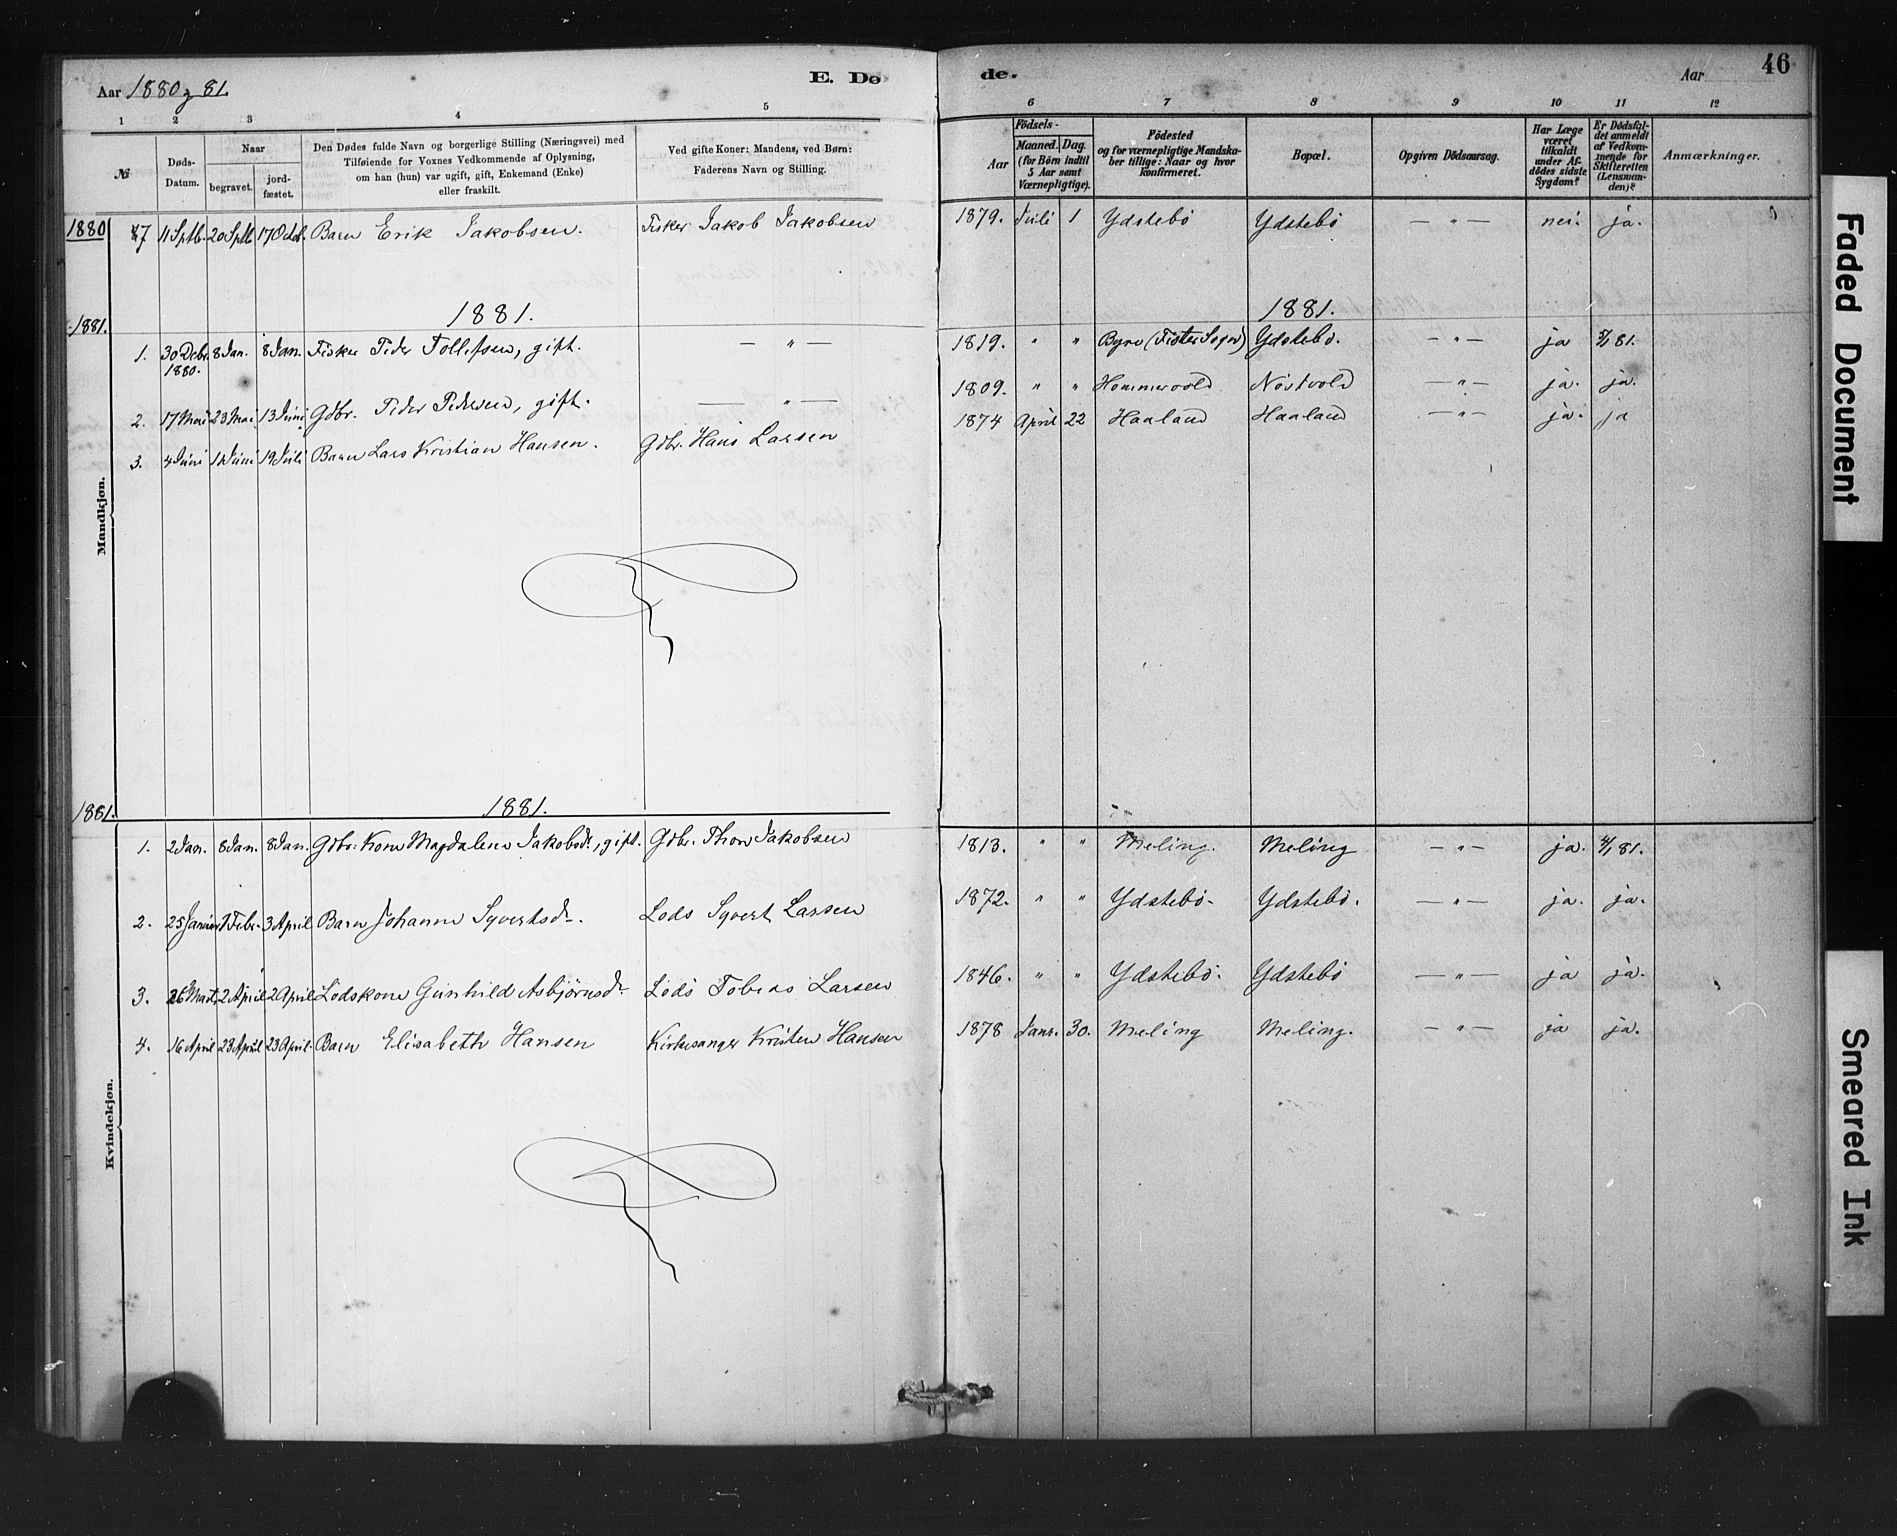 Aar 1880 & 81.
E. Dø
de.
Aar
46
1 2 3 4 5 6 7 8 9 10 11 12
№
Døds-
Datum.
Naar
begravet.
jord-
fæstet.
Den Dødes fulde Navn og borgerlige Stilling (Næringsvei) med
Tilføiende for Voxnes Vedkommende af Oplysning,
om han (hun) var ugift, gift, Enkemand (Enke)
eller fraskilt.
Ved gifte Koner: Mandens, ved Børn:
Faderens Navn og Stilling.
Aar
Födsels-
Maaned. Dag.
(for Børn indtil
5 Aar samt
Værnepligtige).
Födested
og for værnepligtige Mandska-
ber tillige: Naar og hvor
konfirmeret.
Bopæl.
Opgiven Dödsaarsag.
Har Læge
været
tilkaldt
under Af-
dødes sidste
Sygdom?
Er Dödsfal-
det anmeldt
af Vedkom-
mende for
Skifteretten
(Lensman-
den)?
Anmærkninger.
1880 7 11 Sptb. 20 Sptb. 17 Octb. Barn Erik Jakobsen. Fisker Jakob Jakobsen 1879. Juli 1 Ydstebö Ydstebö — " — nei. ja.
1881. 1881. 1881.
1. 30 Decbr. 8 Jan. 8 Jan. Fisker Peder Tollefsen, gift. — " — 1819. " " Byre (Fister Sogn) Ydstebö. — " — ja 5/1 81.
1880.
2. 17 Mai 23 Mai 13 Juni Gdbr. Peder Pedersen, gift. — " — 1809. " " Hommervold Nöstvold — " — ja. ja.
3. 4 Juni 11 Juni 19 Juli Barn Lars Kristian Hansen. Gdbr. Hans Larsen 1874 April 22 Haaland Haaland — " — ja. ja
Mandkjøn.
1881. 1881.
1. 2 Jan. 8 Jan. 8 Jan. Gdbr. Kone Magdalena Jakobsdr., gift. Gdbr. Thore Jakobsen 1813. " " Meling. Meling — " — ja. 4/1 81.
2. 25 Januar 1 Febr. 3 April Barn Johanne Syvertsdr. Lods Syvert Larsen 1872. " " Ydstebö. Ydstebö. — " — ja. ja.
3. 26 Marts 2 April 2 April Lodskone Gunhild Asbjørnsdr. Lods Tobias Larsen 1846. " " Ydstebö. Ydstebö — " — ja ja.
4. 16 April 23 April 23 April. Barn Elisabeth Hansen Kirkesanger Kristen Hansen 1878 Janr. 30. Meling Meling. — " — ja ja.
Kvindekjøn.
Faded Document
Smeared Ink